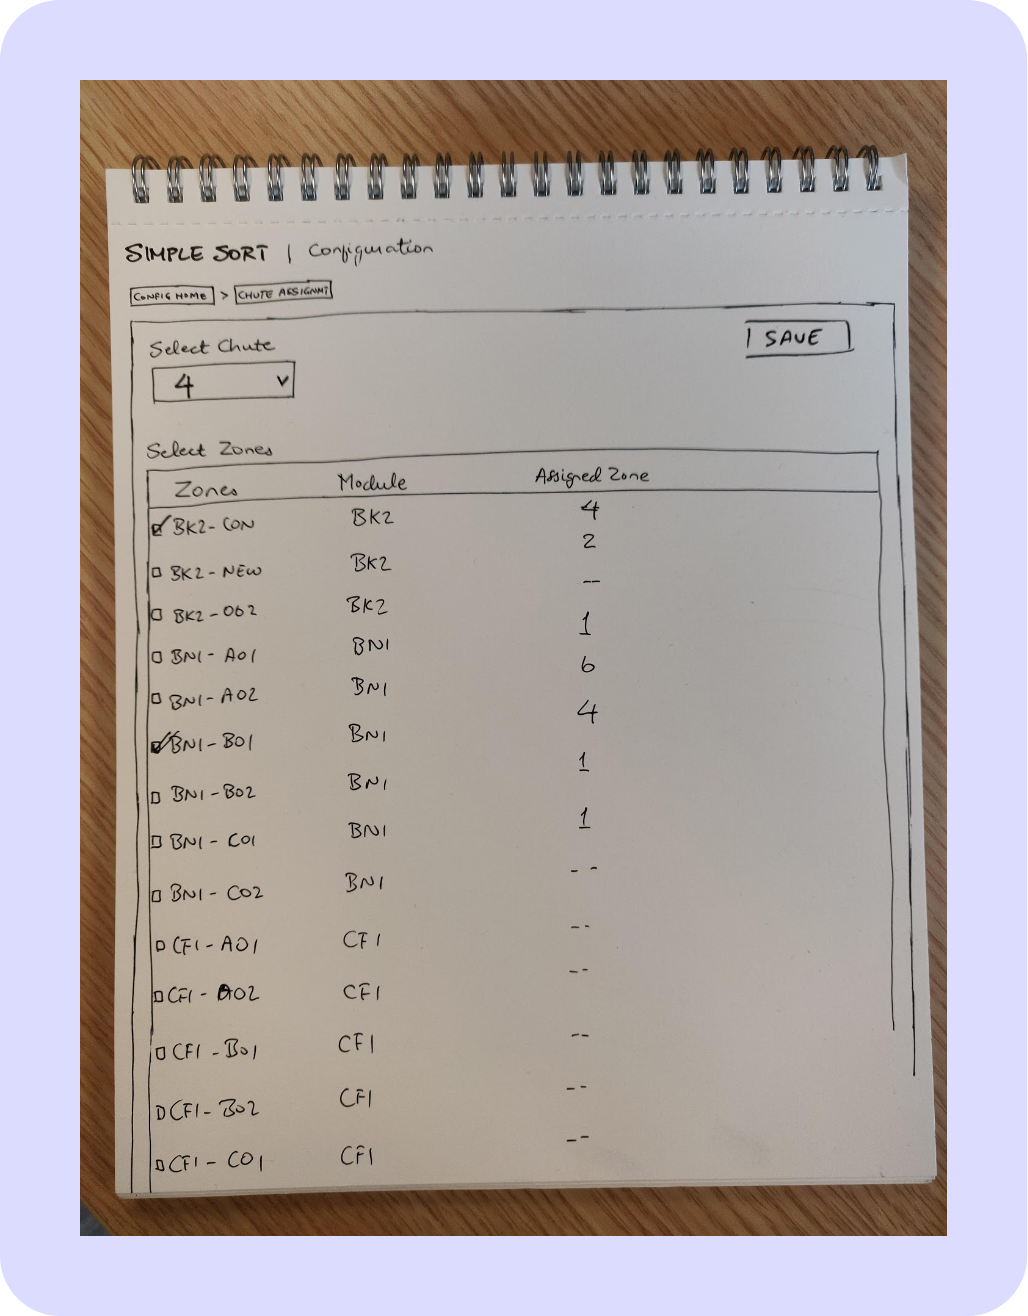 SIMPLE SORT | Configuration
CONFIG HOME > CHUTE ASSIGNMT
Select Chute
SAVE
4
Select Zones
Zones Module Assigned Zone
BK2-CON BK2 4
BK2-NEW BK2 2
BK2-002 BK2 --
BN1-A01 BN1 1
BN1-A02 BN1 6
BN1-B01 BN1 4
BN1-B02 BN1 1
BN1-C01 BN1 1
BN1-C02 BN1 --
CF1-A01 CF1 --
CF1-A02 CF1 --
CF1-B01 CF1 --
CF1-B02 CF1 --
CF1-C01 CF1 --